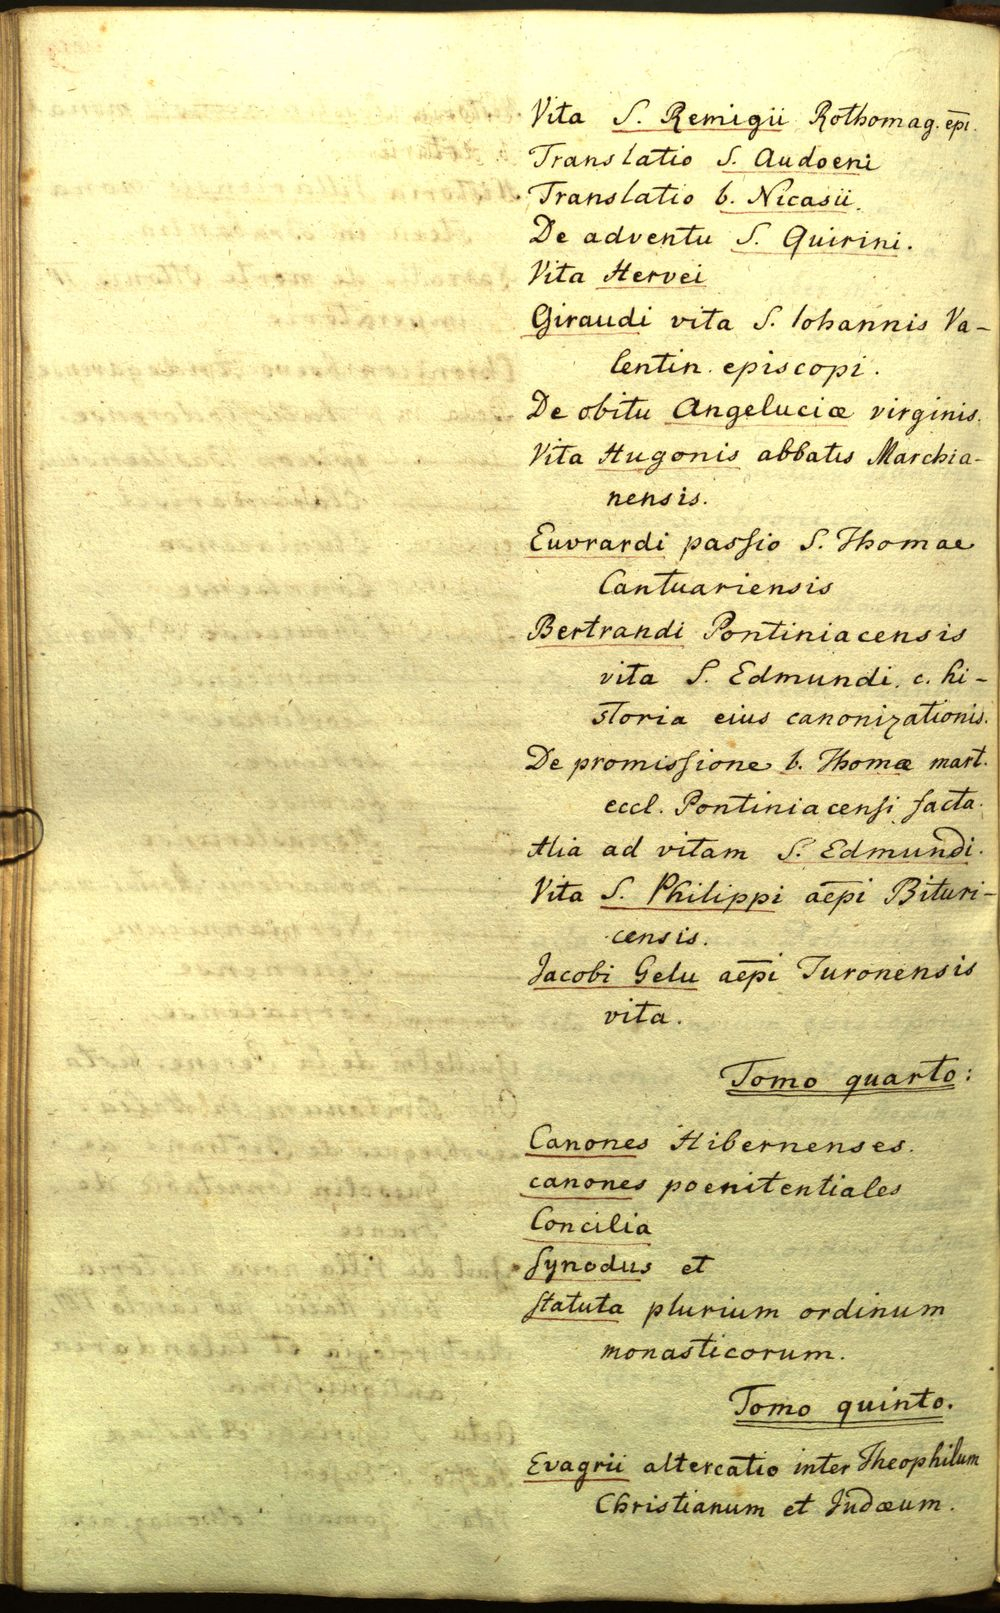 Vita S. Remigii Rothomag. ep̅i.
Translatio S. Audoeni
Translatio b. Nicasii.
De adventu S. Quirini.
Vita Hervei
Giraudi vita S. Iohannis Va-
lentin. episcopi.
De obitu Angeluciæ virginis.
Vita Hugonis abbatis Marchia-
nensis.
Euvrardi passio S. Thomae
Cantuariensis
Bertrandi Pontiniacensis
vita S. Edmundi. c. hi-
storia eius canonizationis.
De promissione b. Thomæ mart.
eccl. Pontiniacensi facta.
Alia ad vitam S. Edmundi.
Vita S. Philippi aep̅i Bituri-
censis.
Jacobi Gelu aep̅i Turonensis
vita.
Tomo quarto:
Canones Hibernenses.
canones poenitentiales
Concilia
Synodus et
statuta plurium ordinum
monasticorum.
Tomo quinto.
Evagrii altercatio inter Theophilum
Christianum et Judæum.